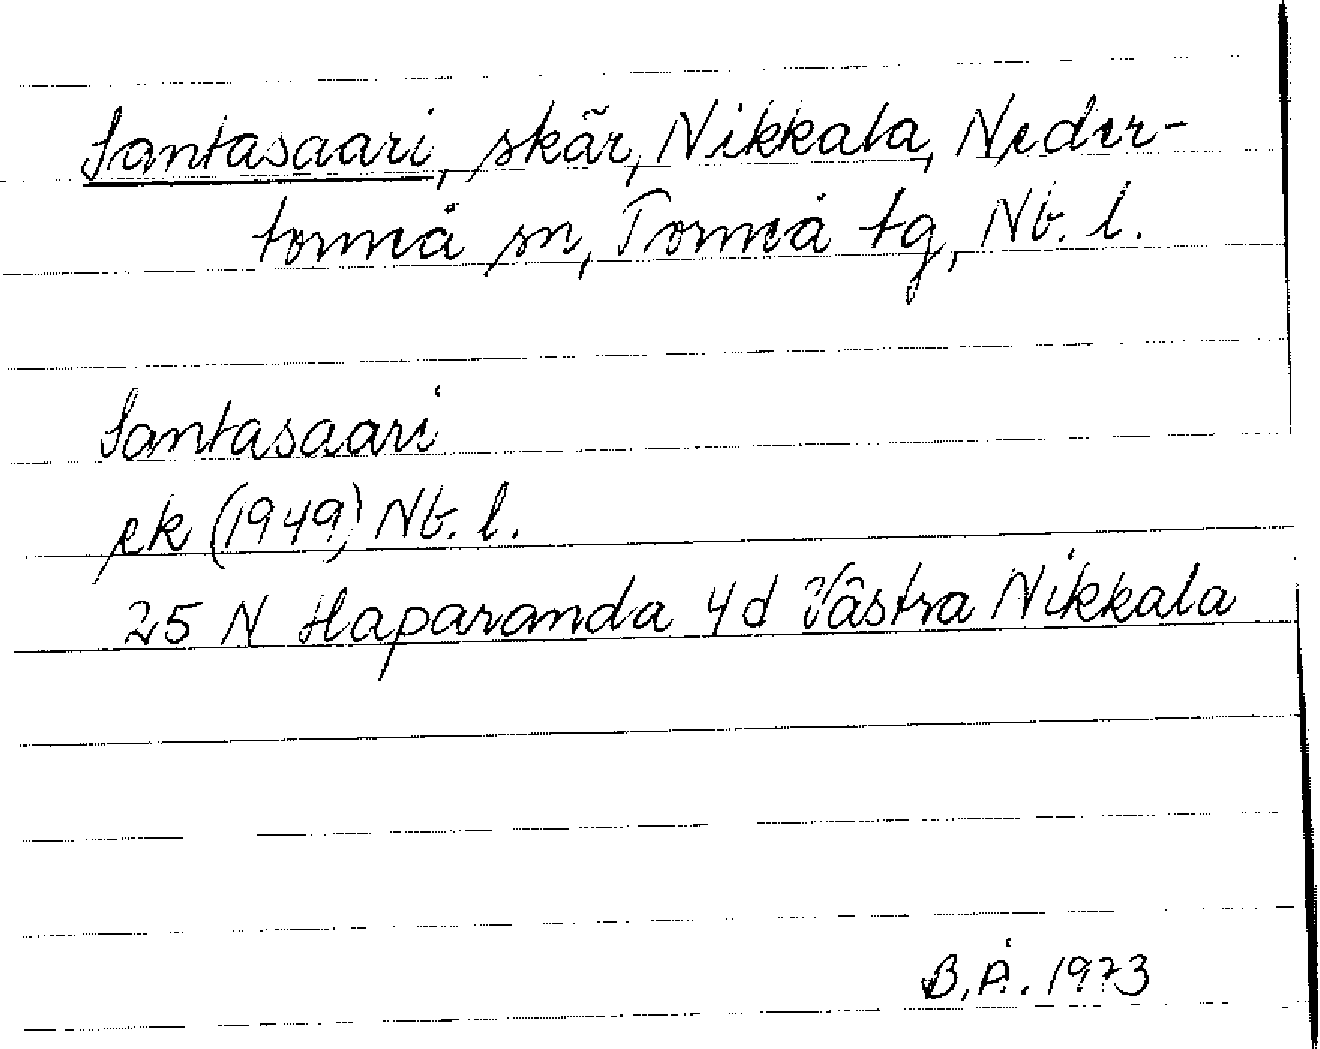 Santasaari, skär, Nikkala, Neder-
torneå sn, Torneå tg, Nb. l.
Santasaari
ek (1949) Nb. l.
25 N Haparanda 4d Västra Nikkala
B. Å. 1973